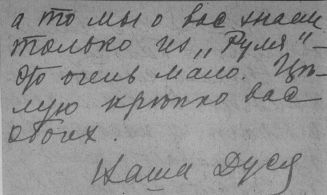 а то мы о вас знаем
только из „Руля" —
это очень мало. Цѣ-
лую крѣпко вас
обоих.
Ваша Дуся